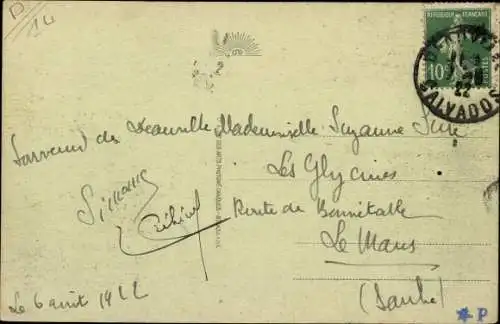 D
14
REPUBLIQUE FRANÇAISE
10c
POSTES
22
CALVADOS
Souvenir de Deauville
Simone
Le 6 août 1922
Mademoiselle Suzanne
Les Glycines
Route de Bonnétable
Le Mans
(Sarthe)
*P